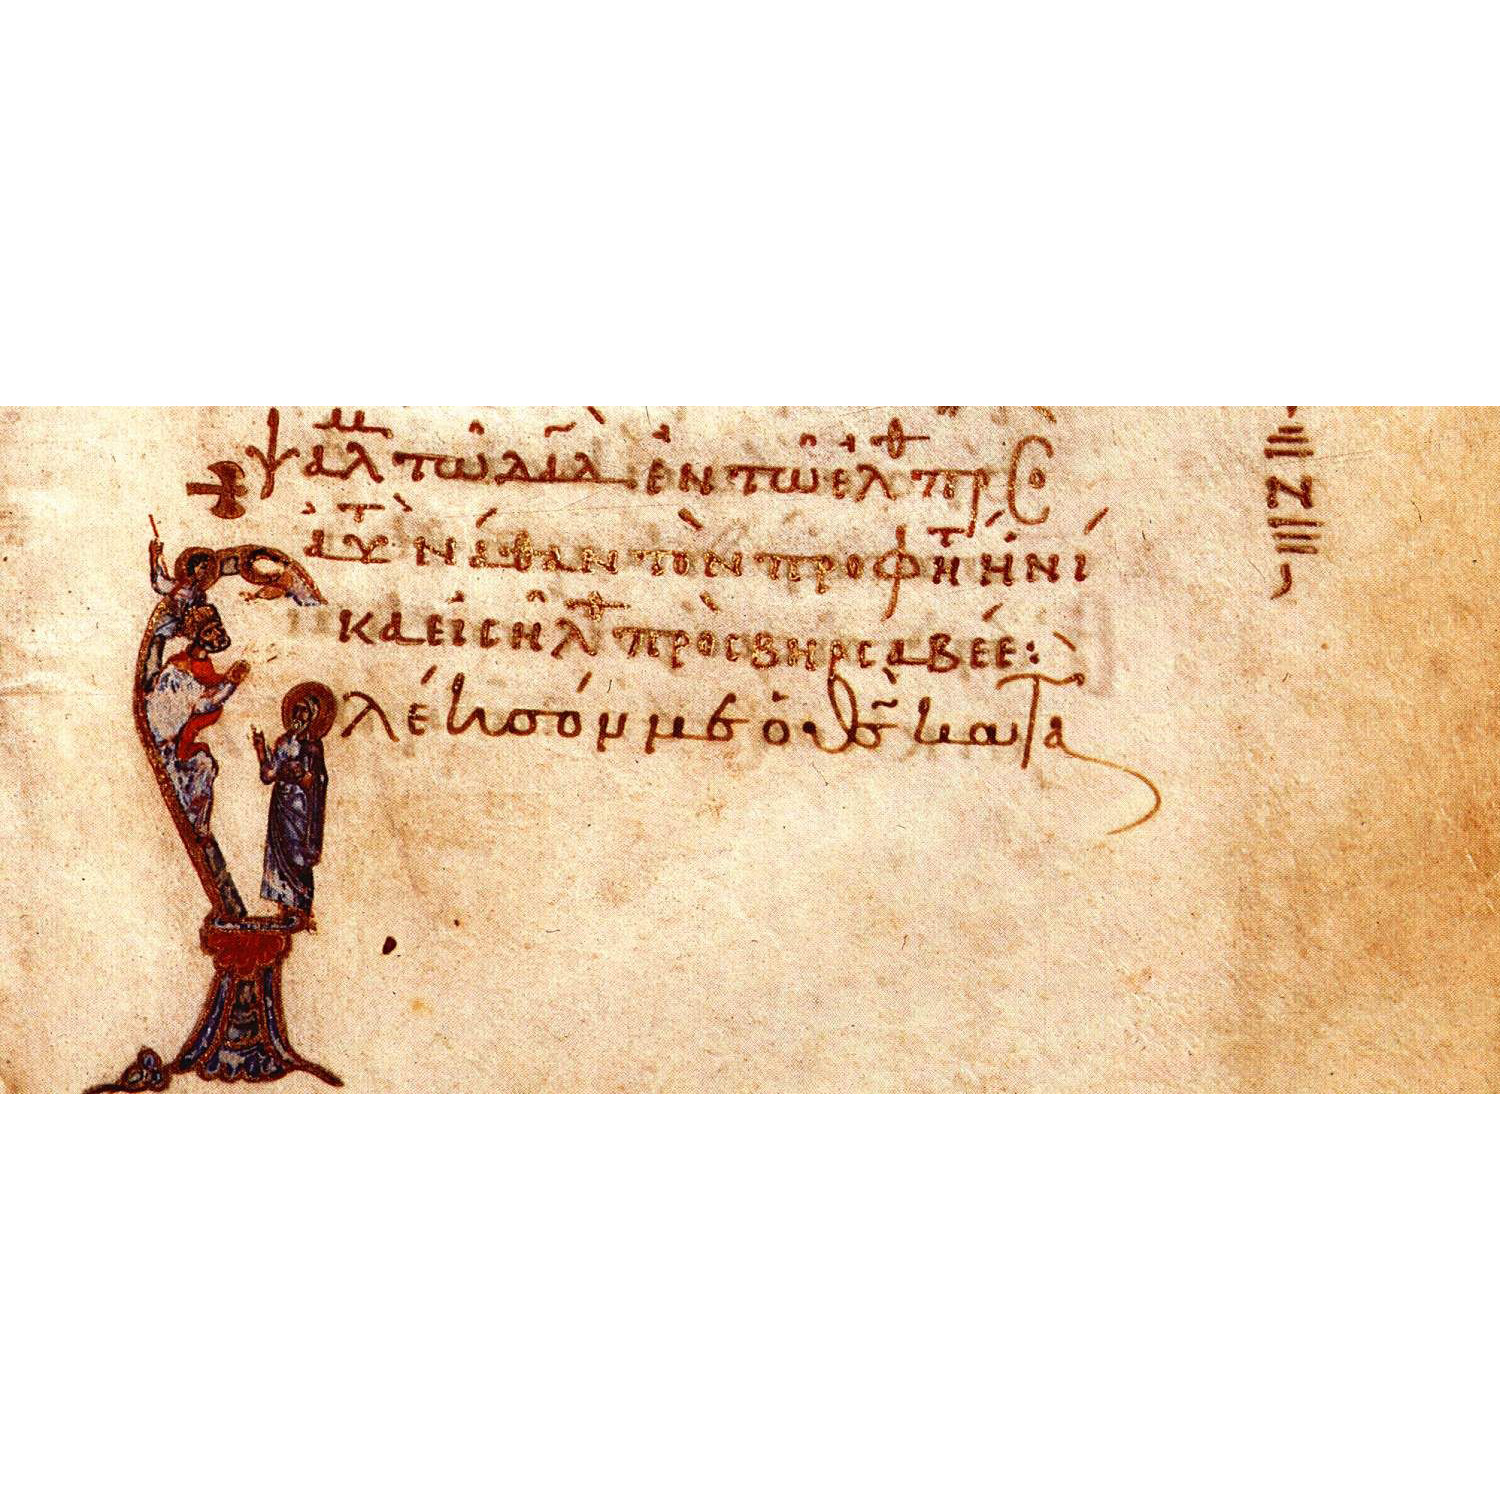 ψαλμ τῶ δᾱδ ἐν τῶ ἐλθ πρὸ
ἀυτ̀ νάθαν τὸν προφήτ ἡνί
κα εἰσῆλθ πρὸς βηρσαβεέ:
λέησόμ με ὁ θ̅ς̀ κατα